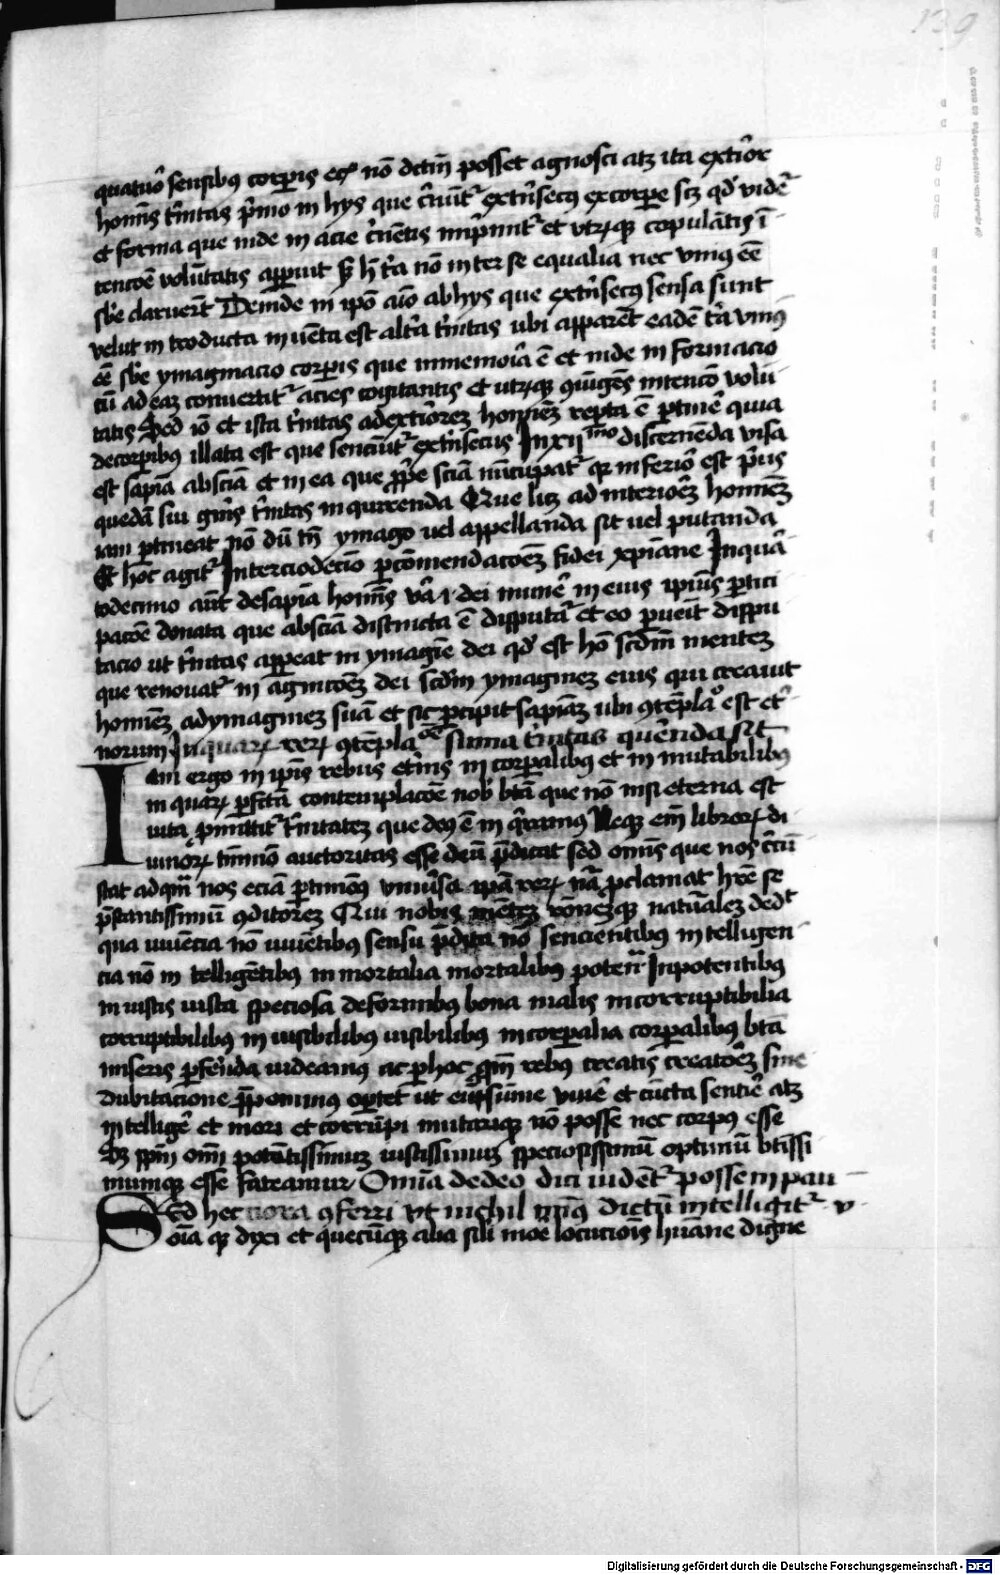 139
quatuor sensibus corporis eque non dictum posset agnosci atque ita exterioris
hominis trinitas primo in hys que cernuntur extrinsecus ex corpore scilicet quod videtur
et forma que inde in acie cernentis imprimitur et utrumque copulantis in
tencoē voluntatis apparuit sed hec tria non inter se equalia nec unius esse
sbē claruerūt Deinde in ipō aīo ab hys que extrinsecus sensa sunt
velut in troducta in uenta est altera trinitas ubi apparent eadē tria unius
eē sbē ymaginacio corporis que in memoria ē et inde in formacio
cū ad eaz conuertitur acies cogitantis et utrumque coniungens intencō volū
tatis Sed iō et ista trinitas ad exteriorem hominem reperta ē pertinere quia
de corporibus illata est que senciuntur extrinsecus In xii mo discernēda visa
est sapiā ab sciā et in ea que proprie sciā nūcupatur quia inferior est prius
quedā sui generis trinitas inquirenda Que licet ad interiorem hominem
iam pertineat nō dū tn̄ ymago uel appellanda sit uel putanda
Et hoc agitur In terciodecimo per cōmendacōez fidei xpiane In quar
todecimo aūt de sapiā hominis vera id ē dei munere in eius ipsius partici
pacōe donata que ab sciā distincta ē disputatur Et eo peruēit dispu
tacio ut trinitas appareat in ymagine dei quod est homo scdm mentez
que renouatur in agnicōez dei scdm ymaginez eius qui creauit
hominem ad ymaginez suā et sic percipit sapiāz ubi cōtēplatio est eter
norum In quarum rerum cōtēplacōe summa trinitas querenda sit
Iam ergo in ipsis rebus eternis in corporalibus et in mutabilibus
in quarum perfecta contemplacōe nobis beata que non nisi eterna est
uita promittitur trinitatez que deus ē in quiramus Neque eīm librorum di
uinorum tantummodo auctoritas esse deum predicat sed omnis que nos circū
stat ad quam nos eciam pertinemus vniuersa ipsa rerum natura proclamat habere se
prestantissimum conditorez Qui nobis mentez rōnezque naturalez dedit
qua uiuencia non uiuētibus sensu predita non sencientibus intelligen
cia non in telligētibus in mortalia mortalibus potencia Inpotentibus
in iustis iusta speciosa deformibus bona malis incorruptibilia
corruptibilibus in uisibilibus uisibilibus incorporalia corporalibus beata
miseris preferēda uideamus ac per hoc quoniam rebus creatis creatorez sine
dubitacione preponimus oportet ut eum summe viuere et cuncta sentire atque
intelligere et mori et corrumpi mutarique non posse nec corpus esse
Sed spiritum omnium potētissimuz iustissimuz speciosissimum optimum beatissi
mumque esse fateamur Omia de deo dici uidetur posse in pau
Sed hec cora conferri vt nichil minus dictum intelligitur v
oīa que dixi et quecumque alia sili more locucionis humane digne
Digitalisierung gefördert durch die Deutsche Forschungsgemeinschaft - DFG